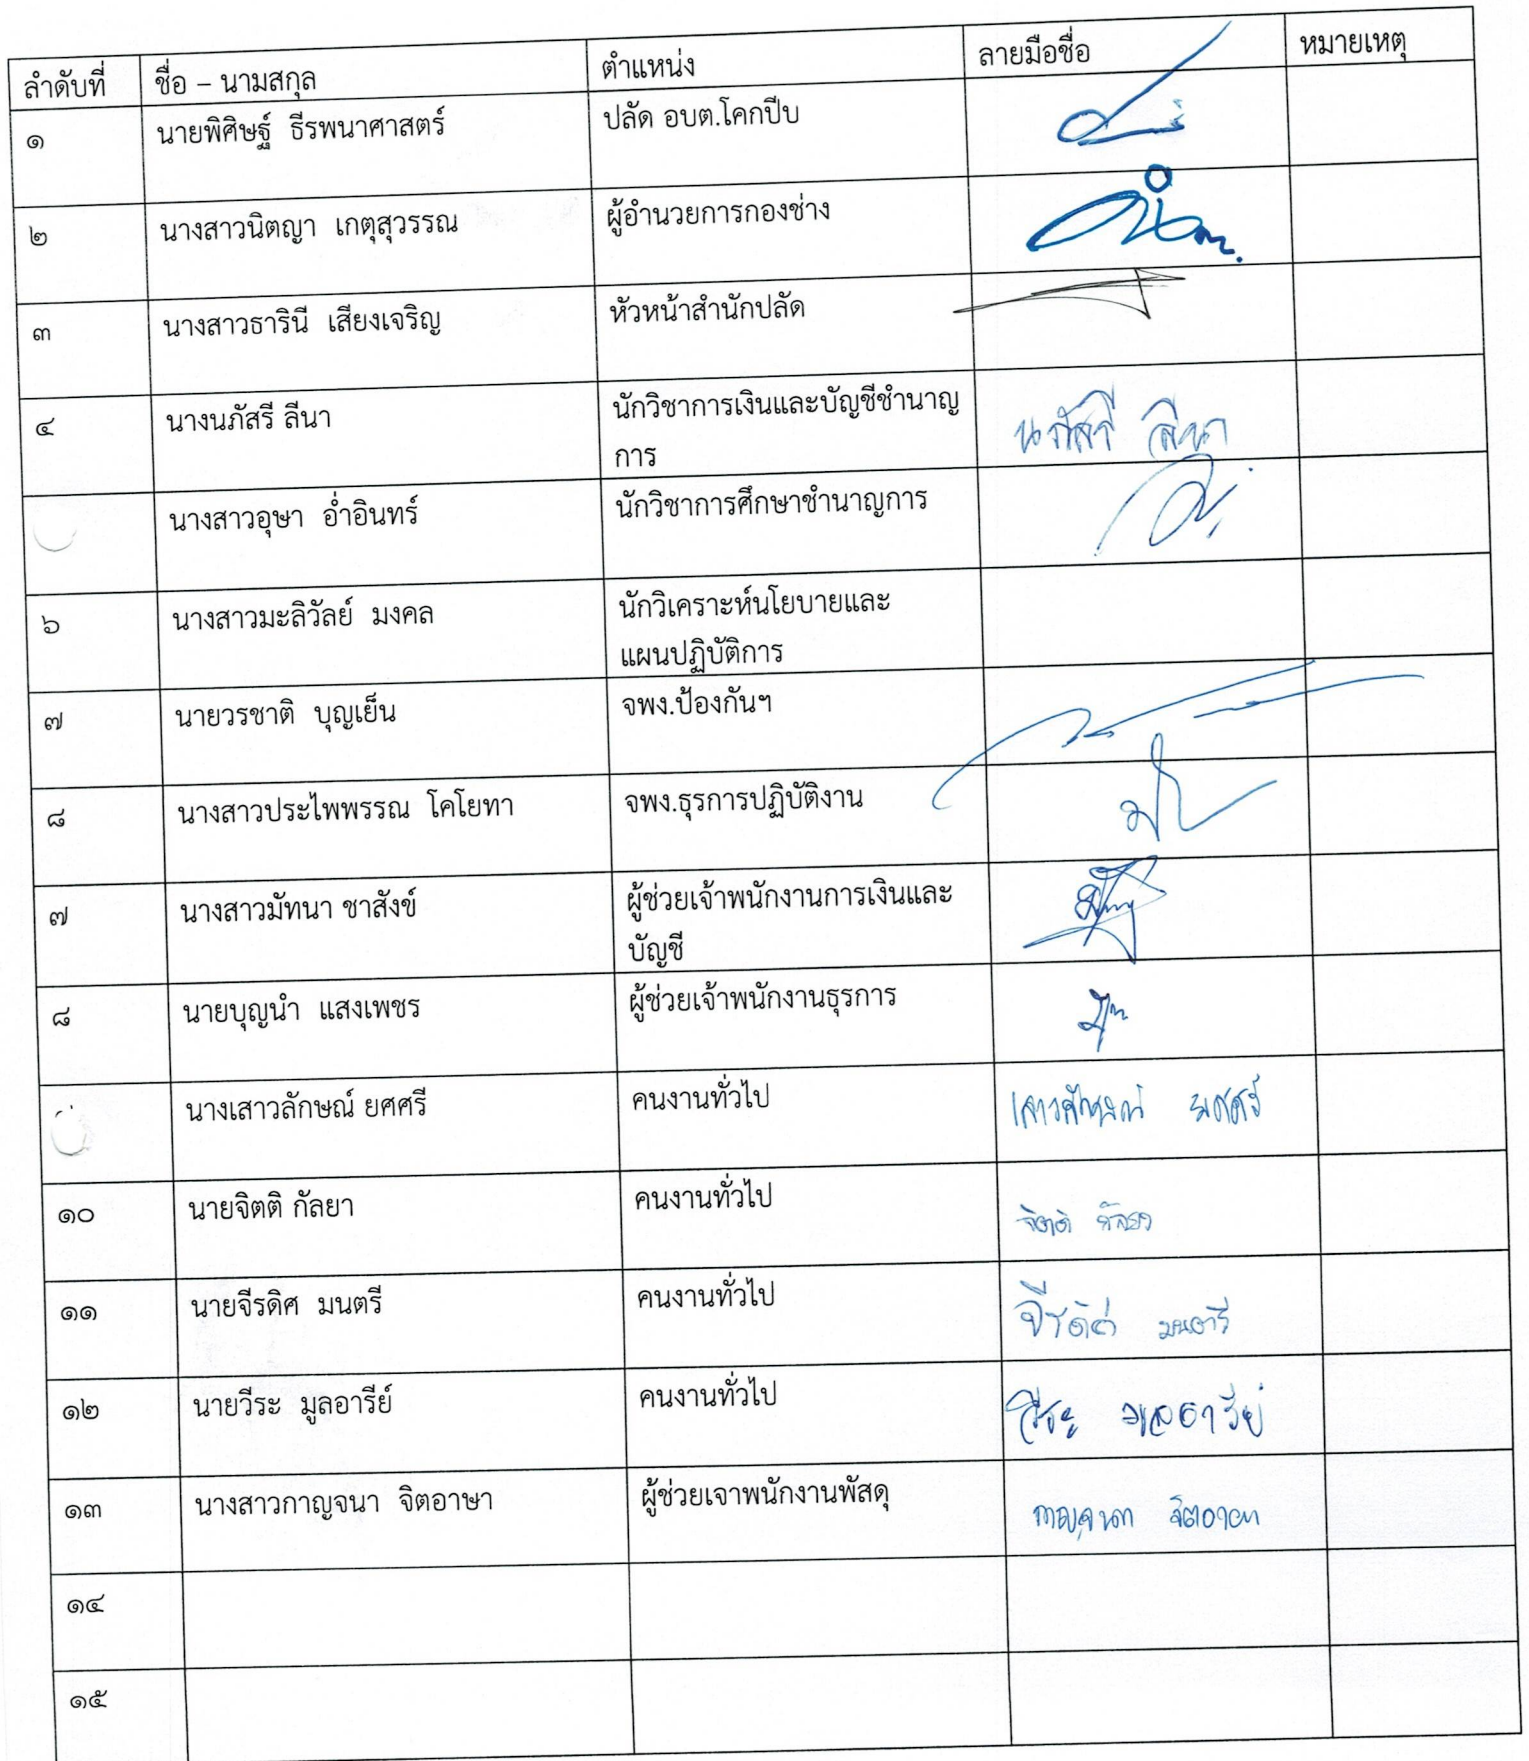 ลำดับที่ ชื่อ – นามสกุล ตำแหน่ง ลายมือชื่อ หมายเหตุ
๑ นายพิศิษฐ์ ธีรพนาศาสตร์ ปลัด อบต.โคกปีบ
๒ นางสาวนิตญา เกตุสุวรรณ ผู้อำนวยการกองช่าง
๓ นางสาวธารินี เสียงเจริญ หัวหน้าสำนักปลัด
๔ นางนภัสรี ลีนา นักวิชาการเงินและบัญชีชำนาญ นภัสรี ลีนา
การ
นางสาวอุษา อ่ำอินทร์ นักวิชาการศึกษาชำนาญการ
๖ นางสาวมะลิวัลย์ มงคล นักวิเคราะห์นโยบายและ
แผนปฏิบัติการ
๗ นายวรชาติ บุญเย็น จพง.ป้องกันฯ
๘ นางสาวประไพพรรณ โคโยทา จพง.ธุรการปฏิบัติงาน
๗ นางสาวมัทนา ชาสังข์ ผู้ช่วยเจ้าพนักงานการเงินและ
บัญชี
๘ นายบุญนำ แสงเพชร ผู้ช่วยเจ้าพนักงานธุรการ
นางเสาวลักษณ์ ยศศรี คนงานทั่วไป เสาวลักษณ์ ยศศรี
๑๐ นายจิตติ กัลยา คนงานทั่วไป จิตติ กัลยา
๑๑ นายจีรดิศ มนตรี คนงานทั่วไป จีรดิศ มนตรี
๑๒ นายวีระ มูลอารีย์ คนงานทั่วไป วีระ มูลอารีย์
๑๓ นางสาวกาญจนา จิตอาษา ผู้ช่วยเจาพนักงานพัสดุ กาญจนา จิตอาษา
๑๔
๑๕